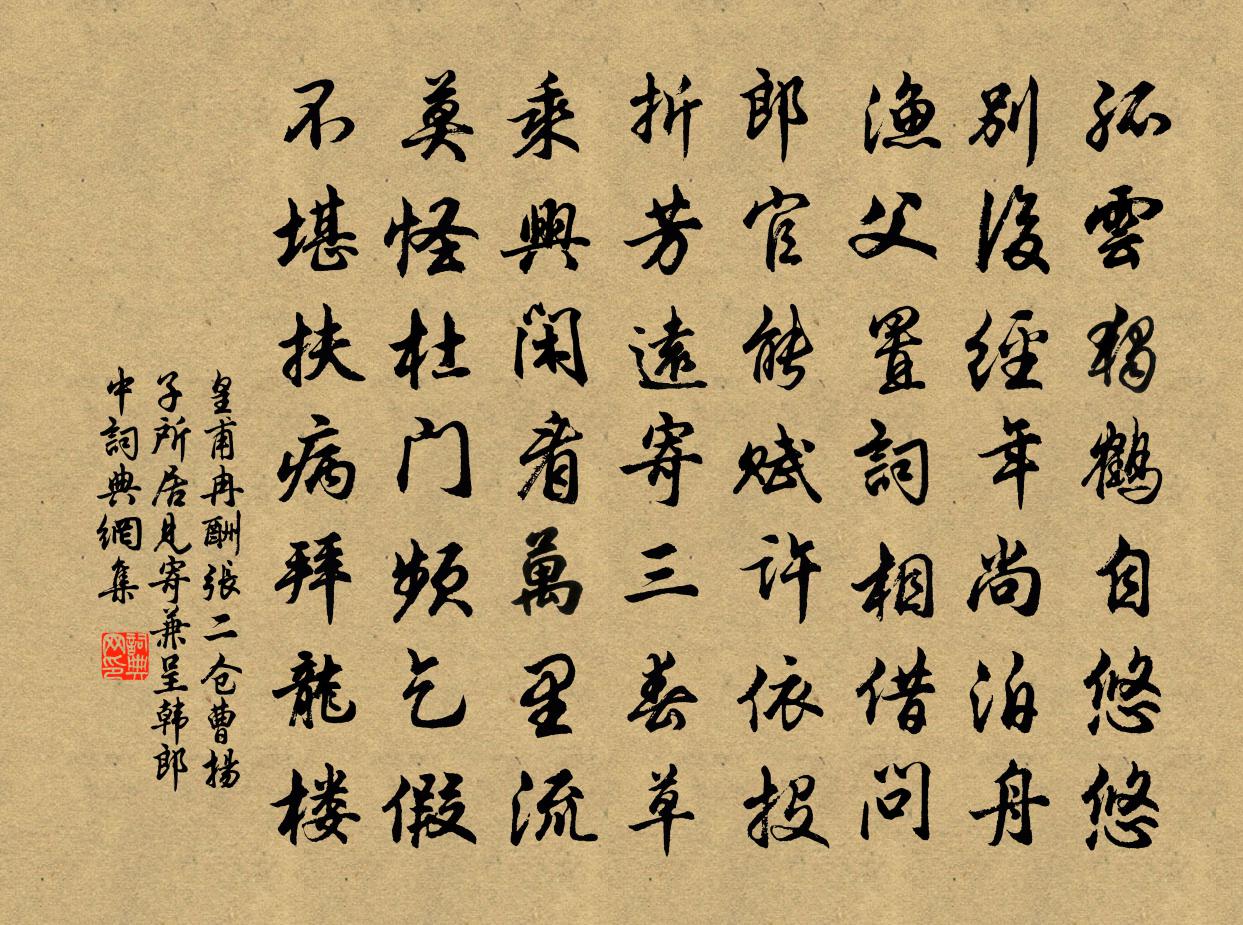 孤雲獨鶴自悠悠
別後經年尚泊舟
漁父置詞相借問
郎官能賦許依投
折芳遠寄三春草
乘興閑看萬里流
莫怪杜门頻乞假
不堪扶病拜龍楼
皇甫冉酬張二仓曹揚
子所居見寄兼呈韩郎
中詞典網集
詞典网印